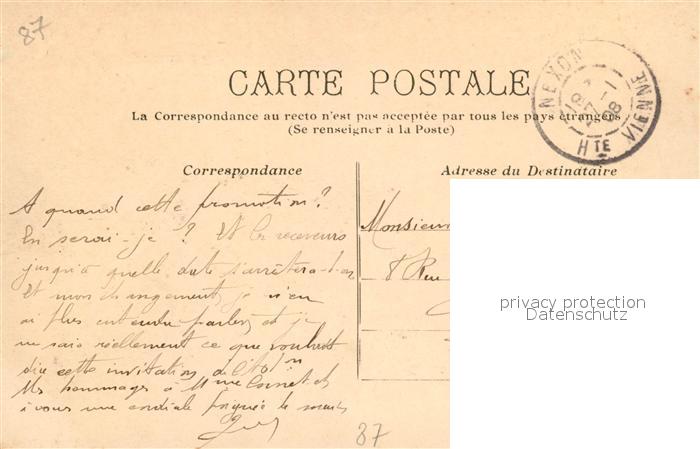 87
CARTE POSTALE
La Correspondance au recto n'est pas acceptée par tous les pays étrangers
(Se renseigner à la Poste)
NEXON
HTE VIENNE
Correspondance
Adresse du Destinataire
A quand cette promotion ?
En serai-je ? Et les receveurs
jusqu'à quelle date s'arrêtera-t-on
Et mon changement, je n'en
ai plus entendu parler, et je
ne sais réellement ce que voulait
dire cette invitation
Mes hommages à Mme
à vous une cordiale poignée de mains
Monsieur
8 Rue
privacy protection
Datenschutz
87